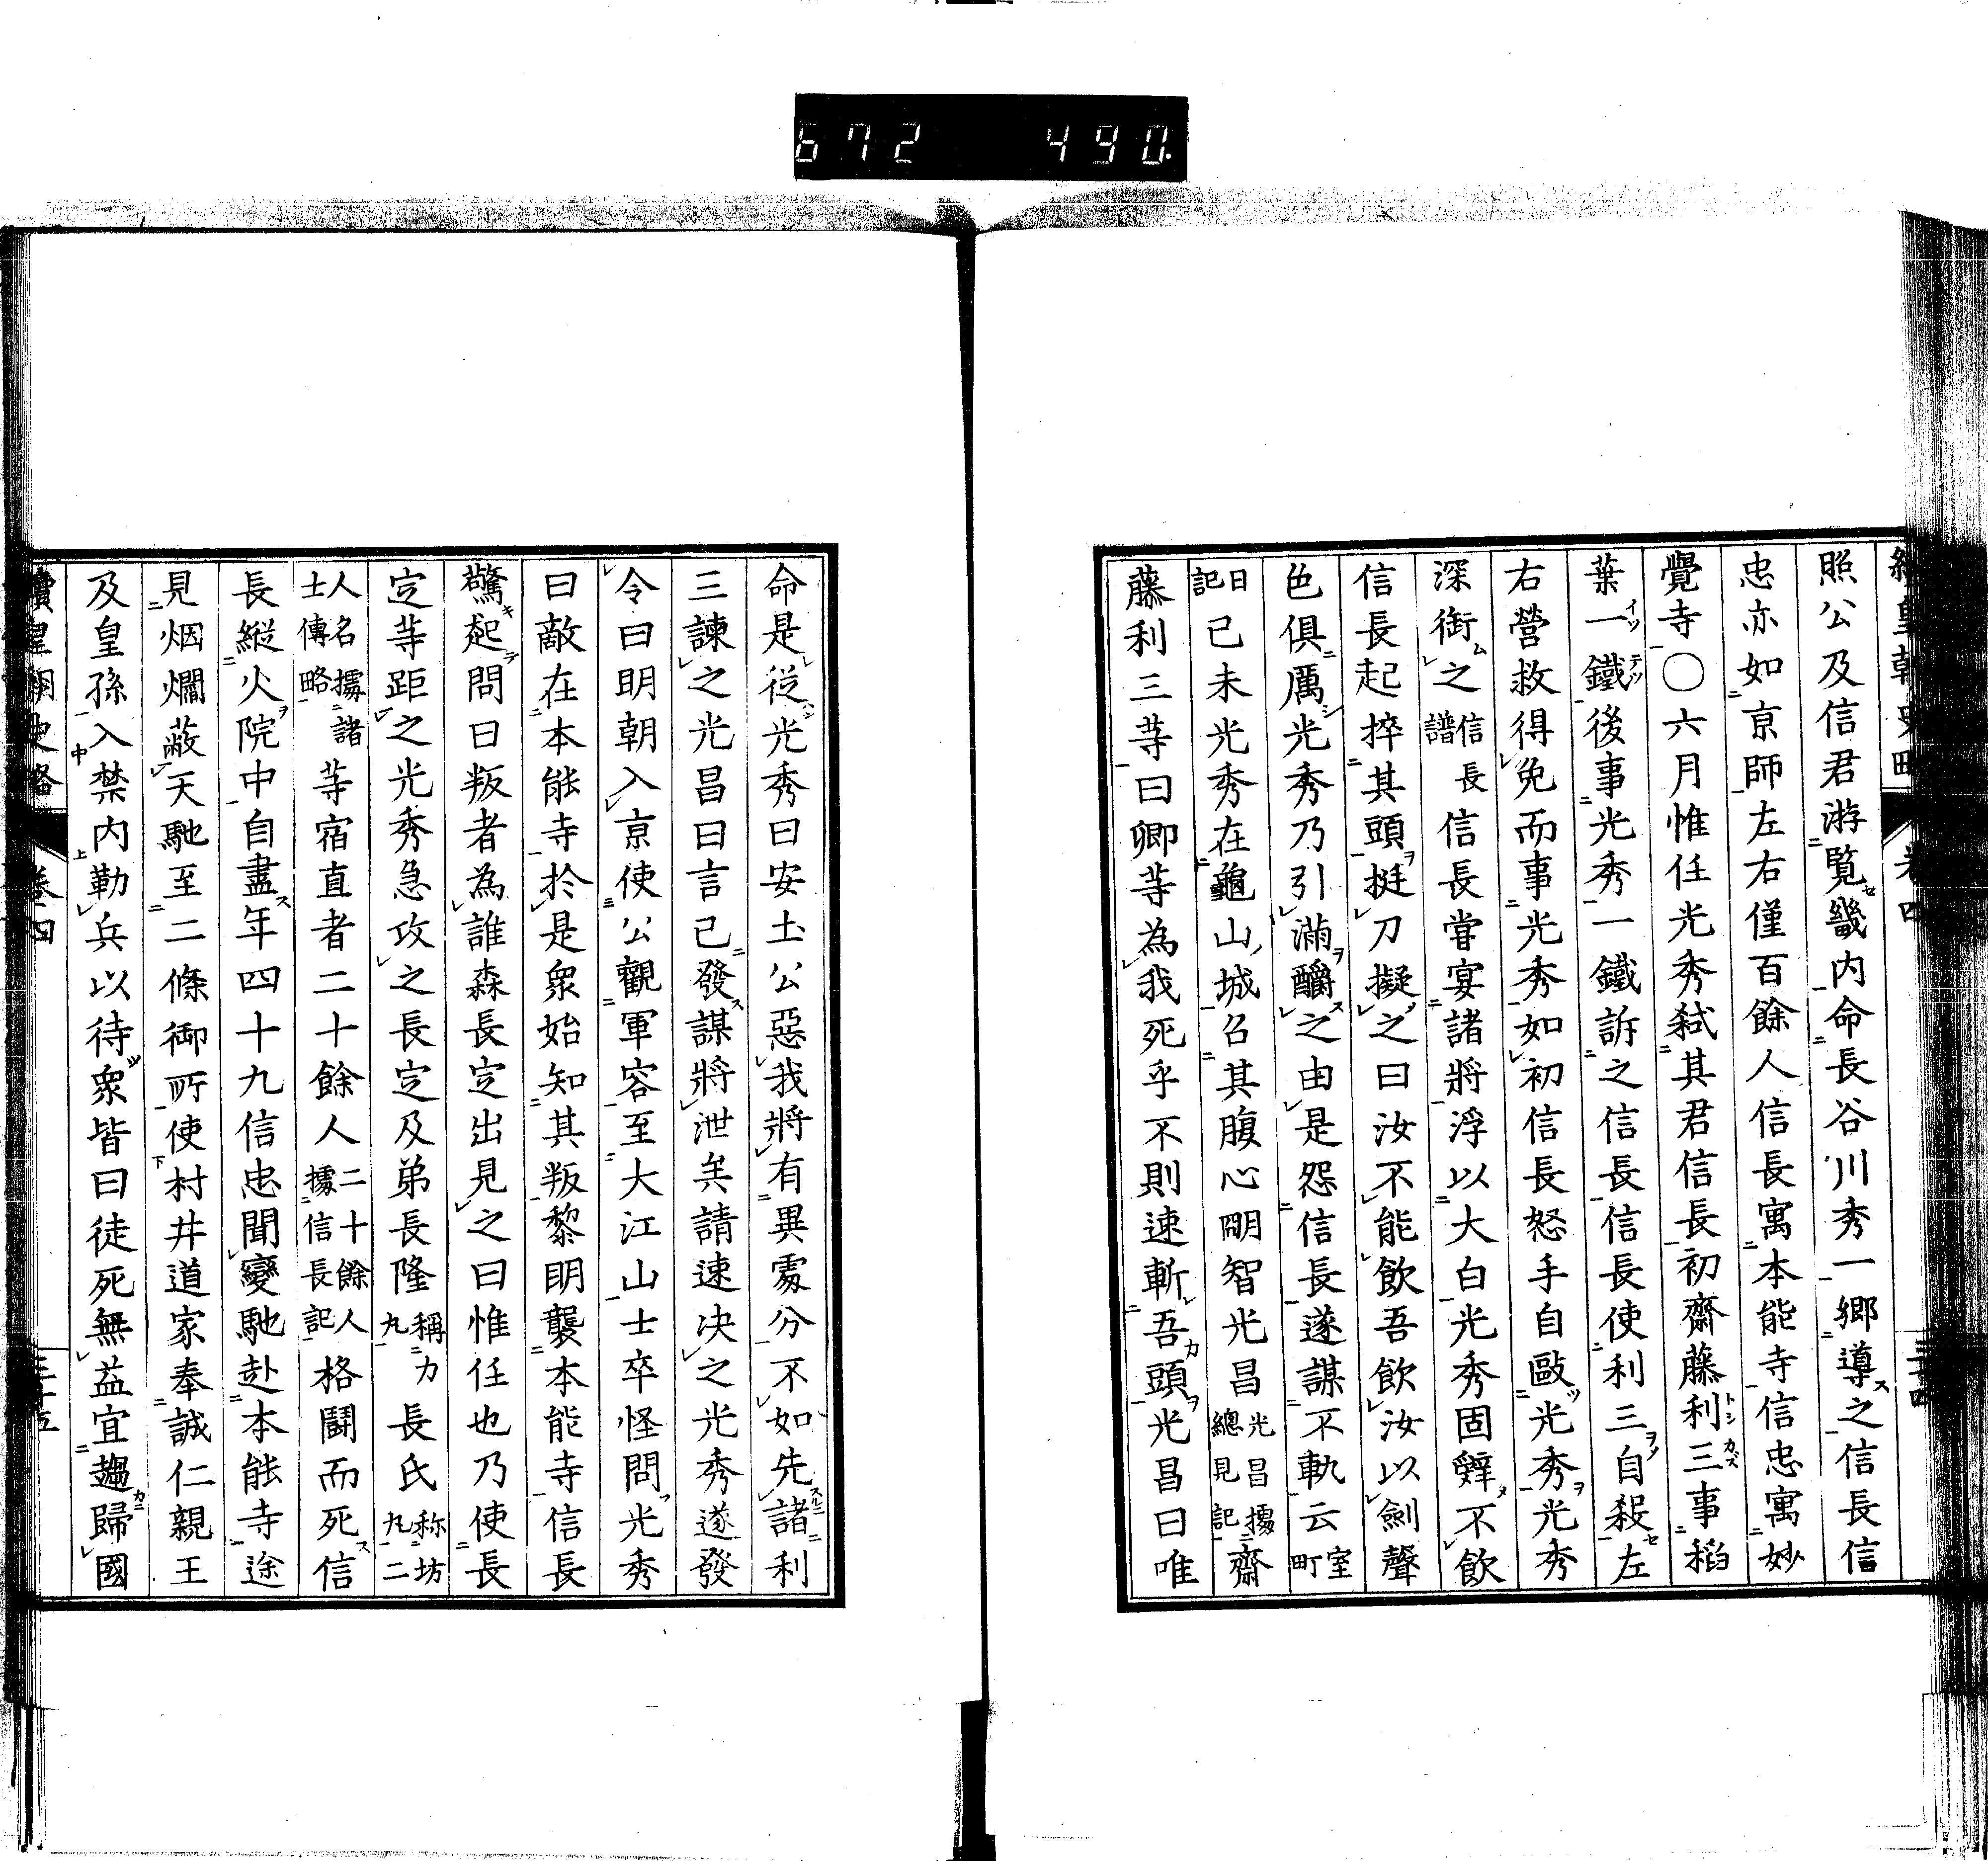 672 490.
照公及信君游覧畿内命長谷川秀一郷導之信長信
忠亦如京師左右僅百餘人信長寓本能寺信忠寓妙
覺寺○六月惟任光秀弑其君信長初齋藤利三事稻
葉一鐵後事光秀一鐵訴之信長信長使利三自殺左
右營救得免而事光秀如初信長怒手自毆光秀光秀
深銜之信長譜信長甞宴諸將浮以大白光秀固辭不飲
信長起捽其頭挺刀擬之曰汝不能飲吾飲汝以劍聲
色俱厲光秀乃引滿釂之由是怨信長遂謀不軌云室町
日記己未光秀在龜山城召其腹心明智光昌光昌據總見記齋
藤利三等曰卿等為我死乎不則速斬吾頭光昌曰唯
命是從光秀曰安土公惡我將有異處分不如先諸利
三諫之光昌曰言已發謀將泄矣請速决之光秀遂發
令曰明朝入京使公觀軍容至大江山士卒怪問光秀
曰敵在本能寺於是衆始知其叛黎明襲本能寺信長
驚起問曰叛者為誰森長定出見之曰惟任也乃使長
定等距之光秀急攻之長定及弟長隆稱力丸長氏称坊丸二
人名據諸士傳略等宿直者二十餘人二十餘人據信長記格鬪而死信
長縱火院中自盡年四十九信忠聞變馳赴本能寺途
見烟爓蔽天馳至二條御所使村井道家奉誠仁親王
及皇孫入禁内勒兵以待衆皆曰徒死無益宜趨歸國
續皇朝史略 卷四 三十五